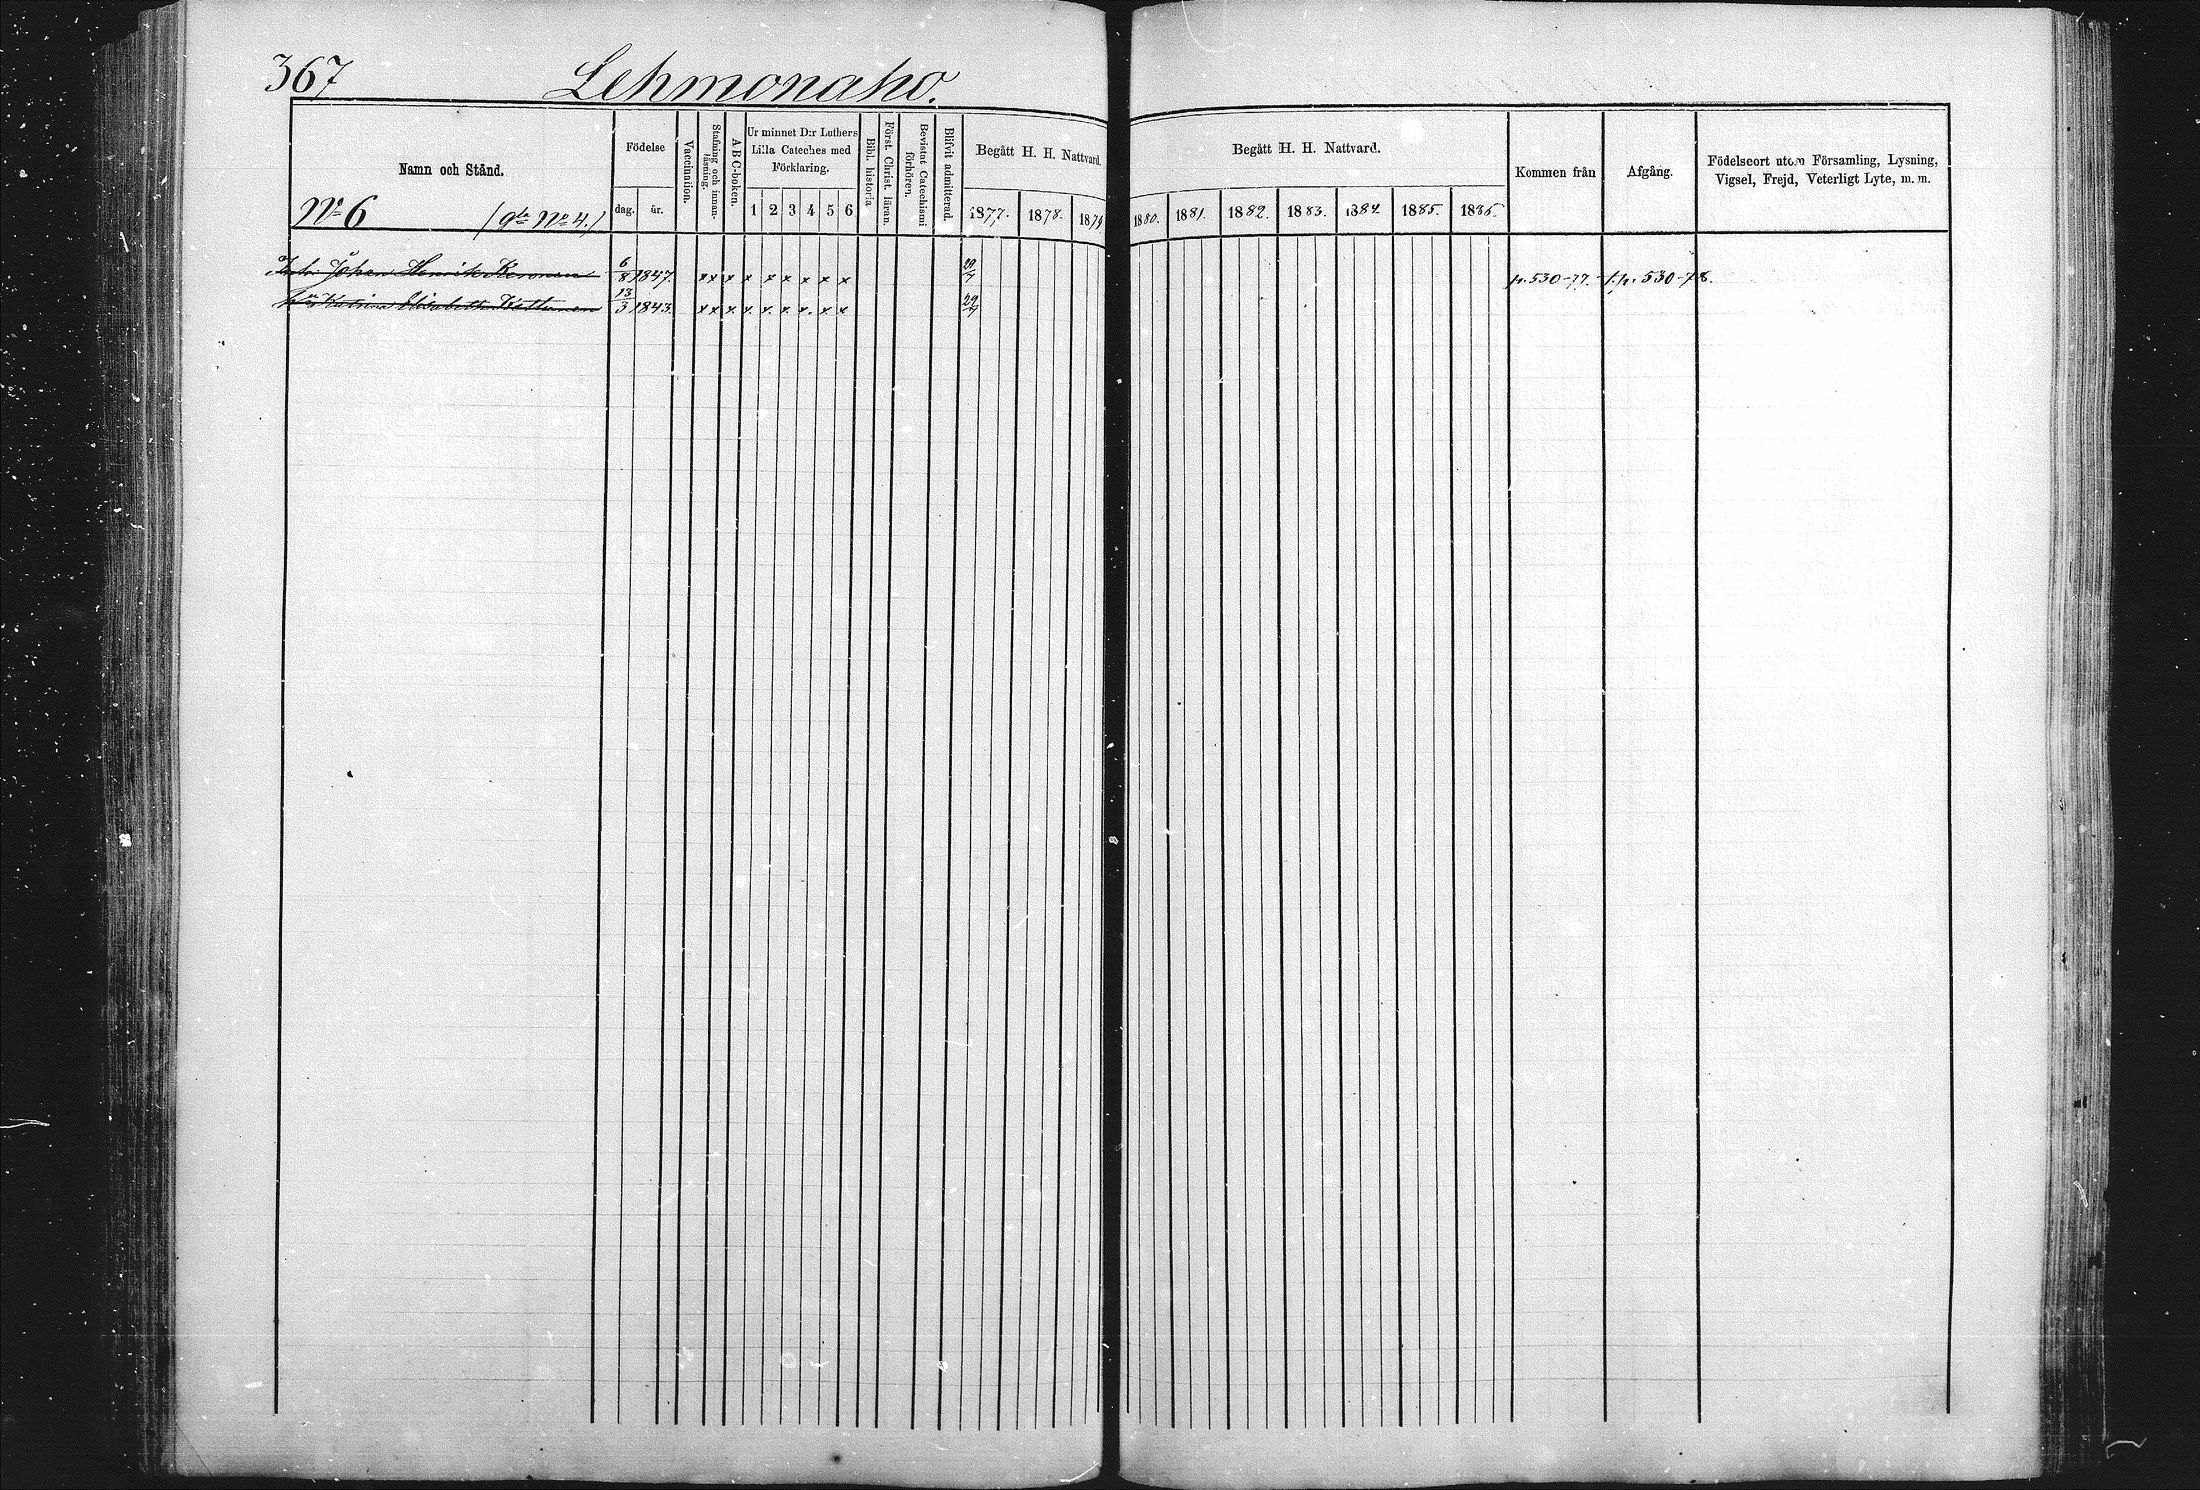 367 Lehmonaho.
Namn och Stånd.
Födelse
dag. år.
Vaccination.
Stafning och innan-
läsning.
A B C-boken.
Ur minnet D:r Luthers
Lilla Cateches med
Förklaring.
1 2 3 4 5 6
Bibl. historia
Först. Christ. läran.
Bevistat Catechismi
förhören.
Blifvit admitterad.
Begått H. H. Nattvard.
1877. 1878. 1879
Begått H. H. Nattvard.
1880. 1881. 1882. 1883. 1884. 1885. 1885.
Kommen från
Afgång.
Födelseort utom Församling, Lysning,
Vigsel, Frejd, Veterligt Lyte, m. m.
No 6 (gla No 4.)
Johan Henrik 6/8 1847. x x x x x x x x x 29/7 p. 530-77. f. p. 530-78.
Katrina Elisabeth 13/3 1843. x x x x x x x x x 29/7